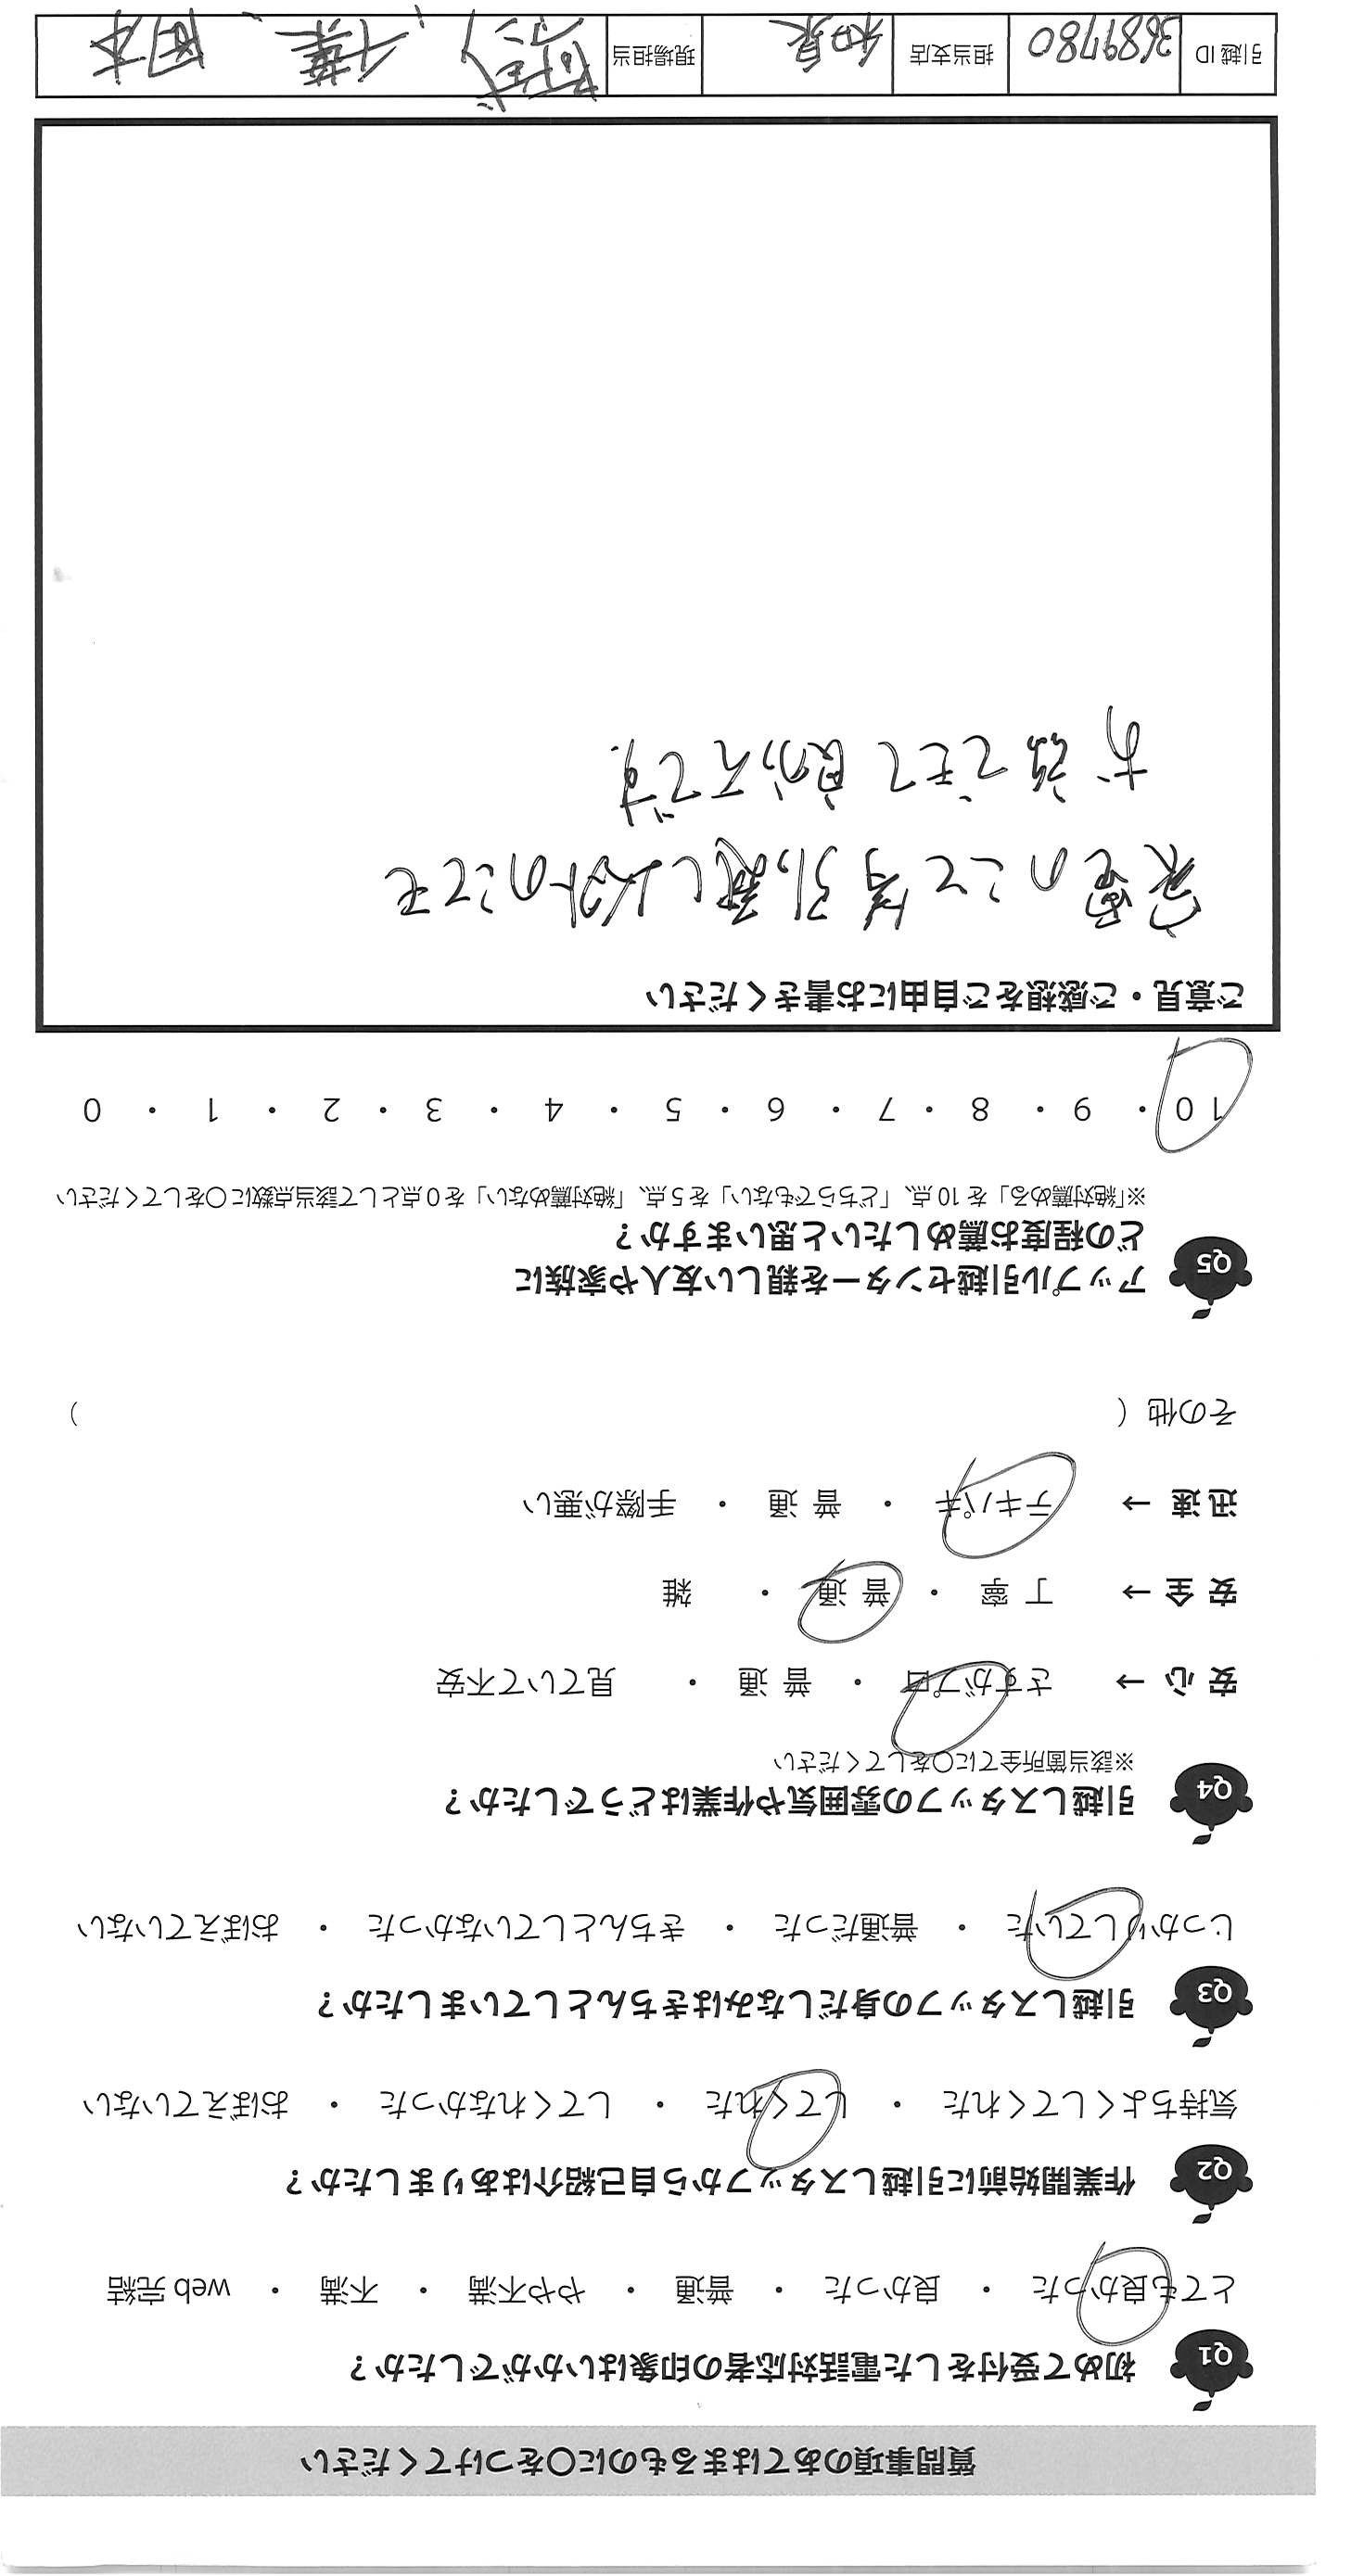 質問事項のあてはまるものに〇をつけてください
Q1 初めて受付をした電話対応者の印象はいかがでしたか？
とても良かった ・ 良かった ・ 普通 ・ やや不満 ・ 不満 ・ web 完結
Q2 作業開始前に引越しスタッフから自己紹介はありましたか？
気持ちよくしてくれた ・ してくれた ・ してくれなかった ・ おぼえていない
Q3 引越しスタッフの身だしなみはきちんとしていましたか？
しっかりしていた ・ 普通だった ・ きちんとしていなかった ・ おぼえていない
Q4 引越しスタッフの雰囲気や作業はどうでしたか？
※該当箇所全てに〇をしてください
安 心 → さすがプロ ・ 普 通 ・ 見ていて不安
安 全 → 丁 寧 ・ 普 通 ・ 雑
迅 速 → テキパキ ・ 普 通 ・ 手際が悪い
その他（ ）
Q5 アップル引越センターを親しい友人や家族に
どの程度お薦めしたいと思いますか？
※「絶対薦める」を 10 点、「どちらでもない」を 5 点、「絶対薦めない」を 0 点として該当点数に〇をしてください
10 ・ 9 ・ 8 ・ 7 ・ 6 ・ 5 ・ 4 ・ 3 ・ 2 ・ 1 ・ 0
ご意見・ご感想をご自由にお書きください
家電のこと等引越し以外のことも
お話できて良かったです
引越 ID 3689780 担当支店 和泉 現場担当 千葉、岡本